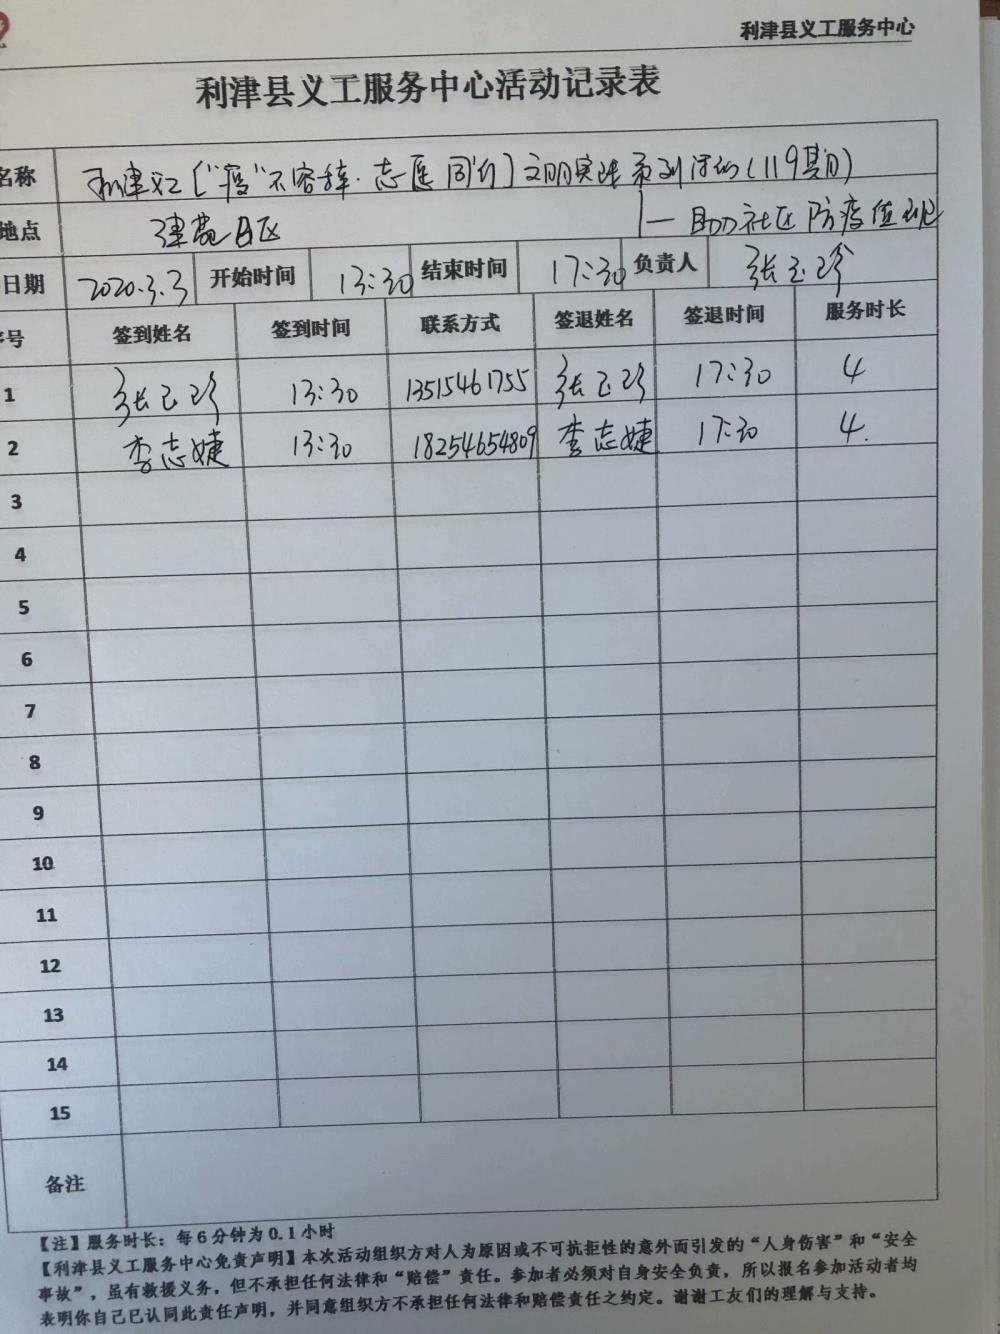 利津县义工服务中心
利津县义工服务中心活动记录表
名称 利津义工〔“疫”不容辞·志愿同行〕文明实践系列活动(119期)
地点 津苑B区 — 助力社区防疫值班
日期 2020.3.3 开始时间 13:30 结束时间 17:30 负责人 张玉珍
序号 签到姓名 签到时间 联系方式 签退姓名 签退时间 服务时长
1 张玉珍 13:30 13515461755 张玉珍 17:30 4
2 李志婕 13:30 18254654809 李志婕 17:30 4.
3
4
5
6
7
8
9
10
11
12
13
14
15
备注
【注】服务时长：每6分钟为0.1小时
【利津县义工服务中心免责声明】本次活动组织方对人为原因或不可抗拒性的意外而引发的“人身伤害”和“安全
事故”，虽有救援义务，但不承担任何法律和“赔偿”责任。参加者必须对自身安全负责，所以报名参加活动者均
表明你自己已认同此责任声明，并同意组织方不承担任何法律和赔偿责任之约定。谢谢工友们的理解与支持。